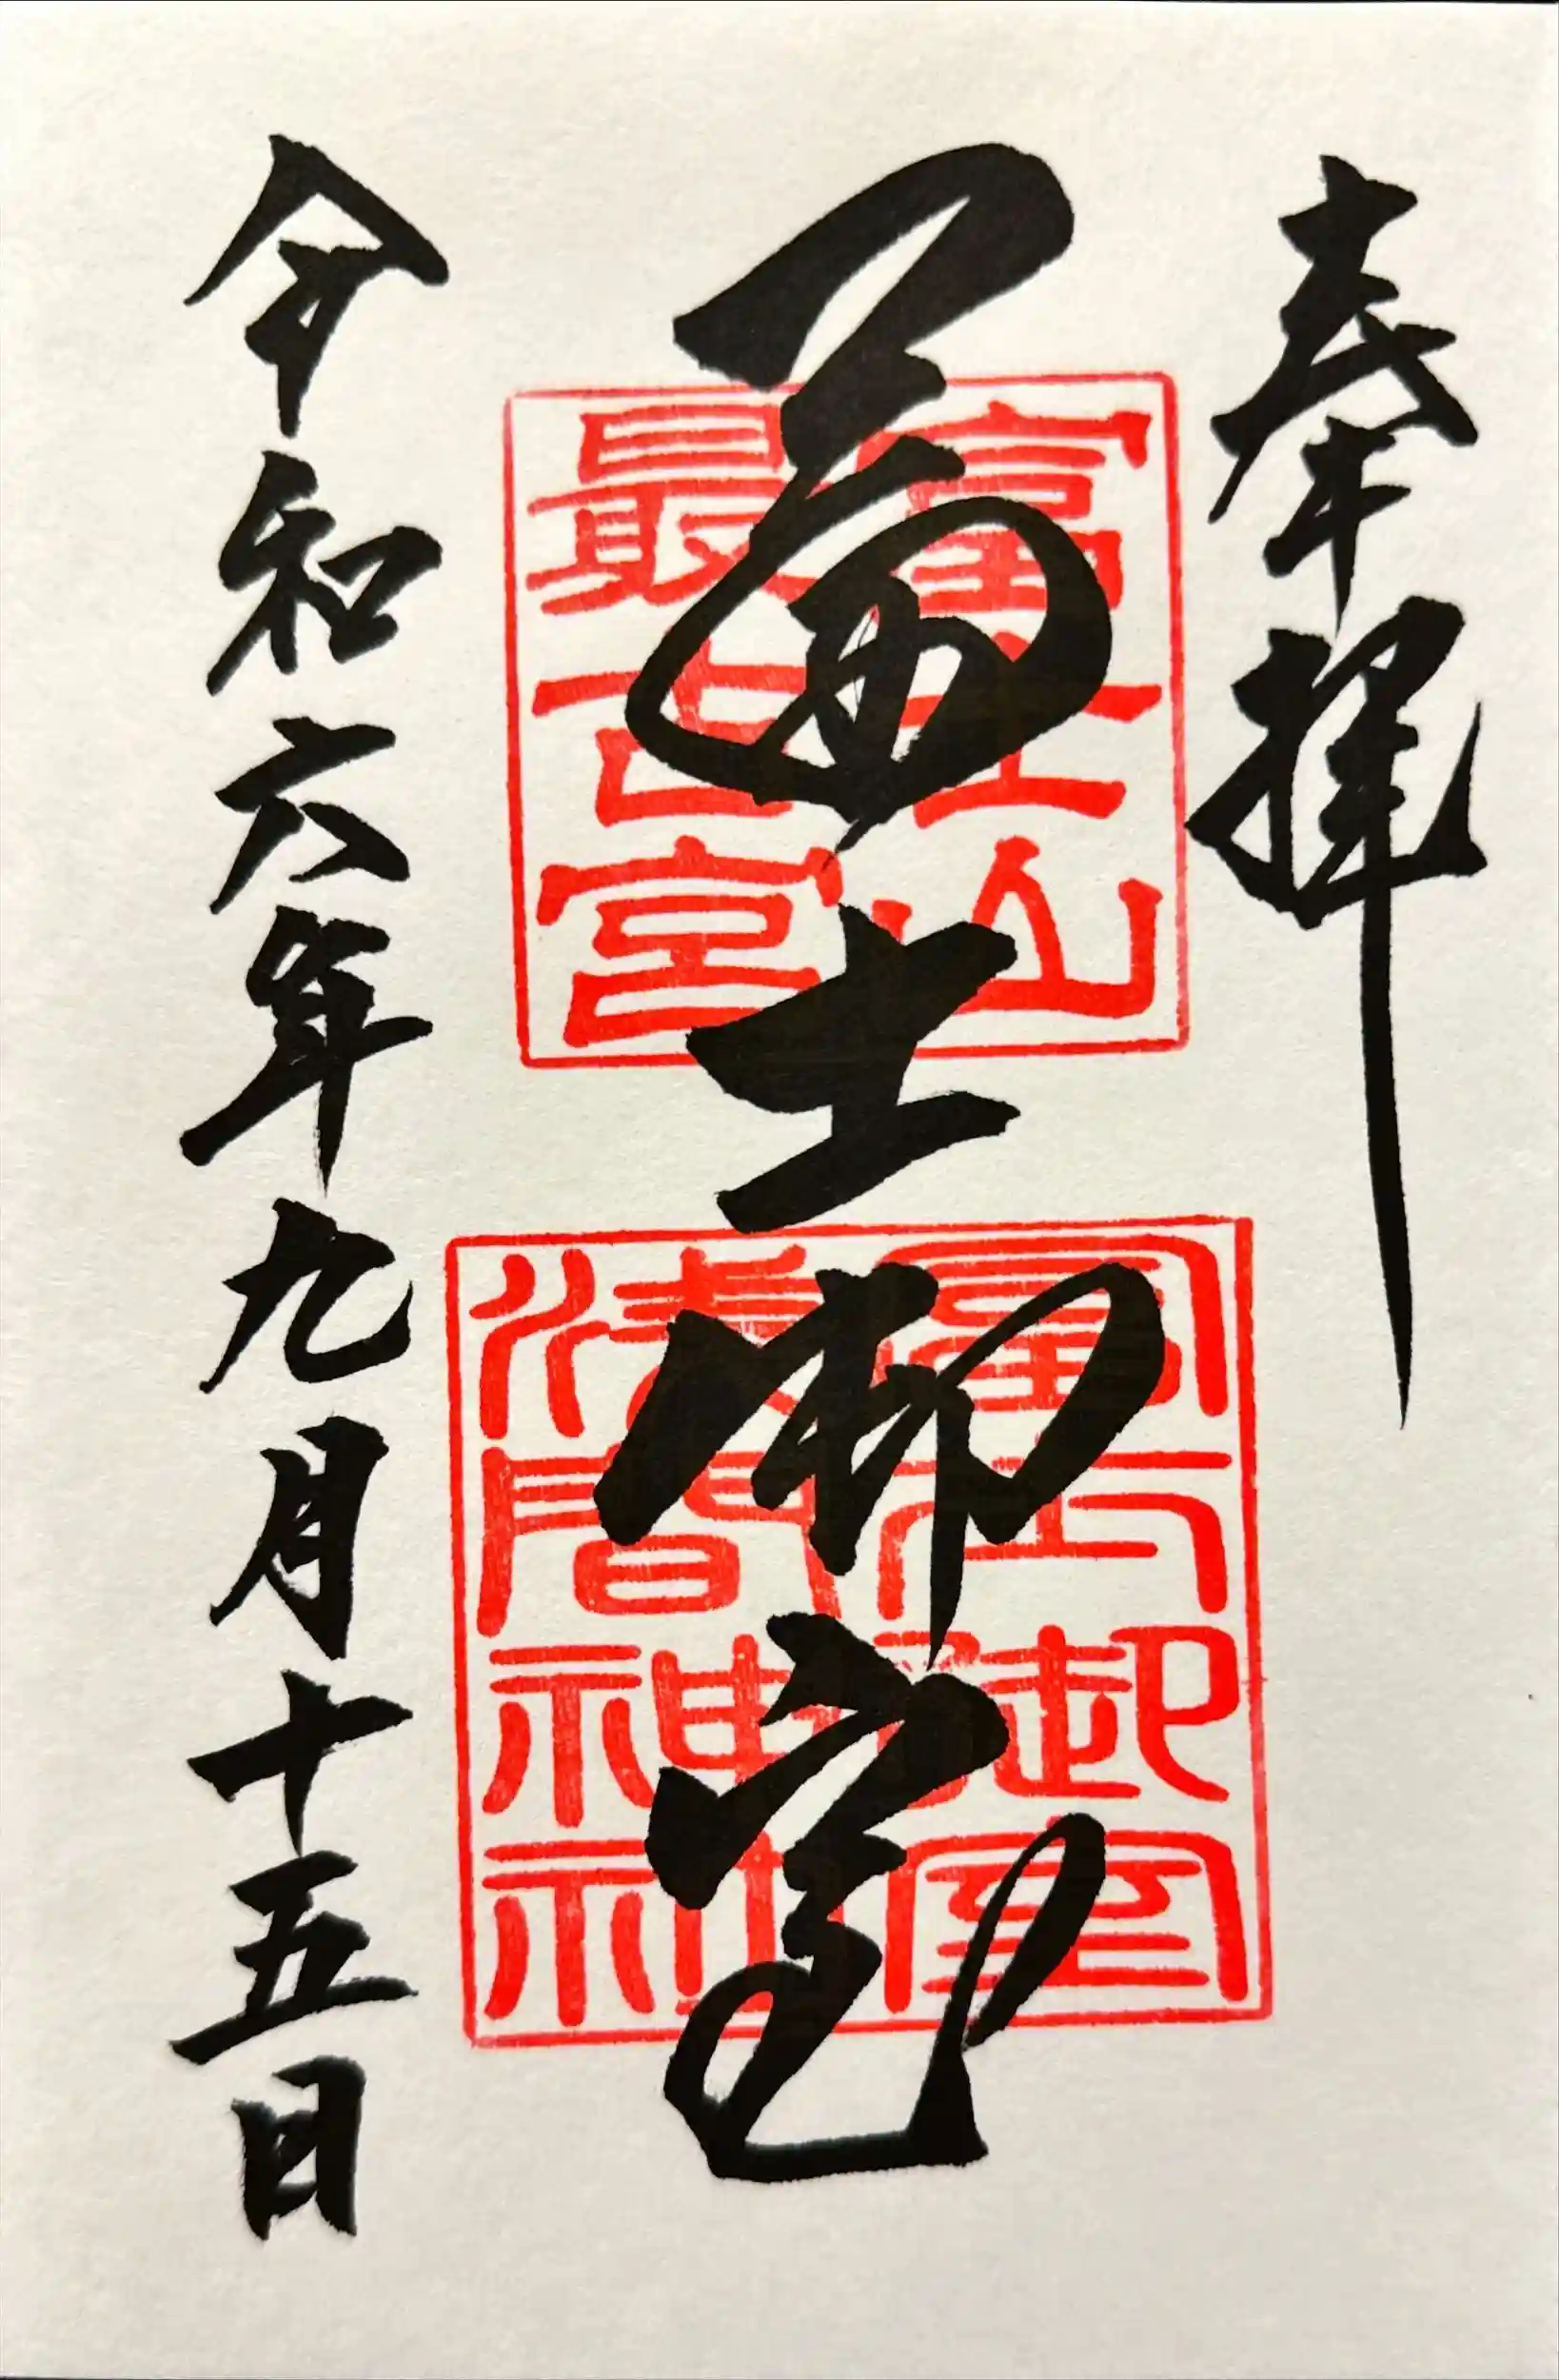 奉拝
富士御室
富士山
最古宮
冨士御室
浅間神社
令和六年九月十五日